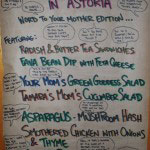 IN ASTORIA
WORD TO YOUR MOTHER EDITION...
FEATURING:
RADISH & BUTTER TEA SANDWICHES
FAVA BEAN DIP WITH FETA CHEESE
YOUR MOM'S GREEN GODDESS SALAD
TAMARA'S MOM'S CUCUMBER SALAD
ASPARAGUS - MUSHROOM HASH
SMOTHERED CHICKEN WITH ONIONS
& THYME